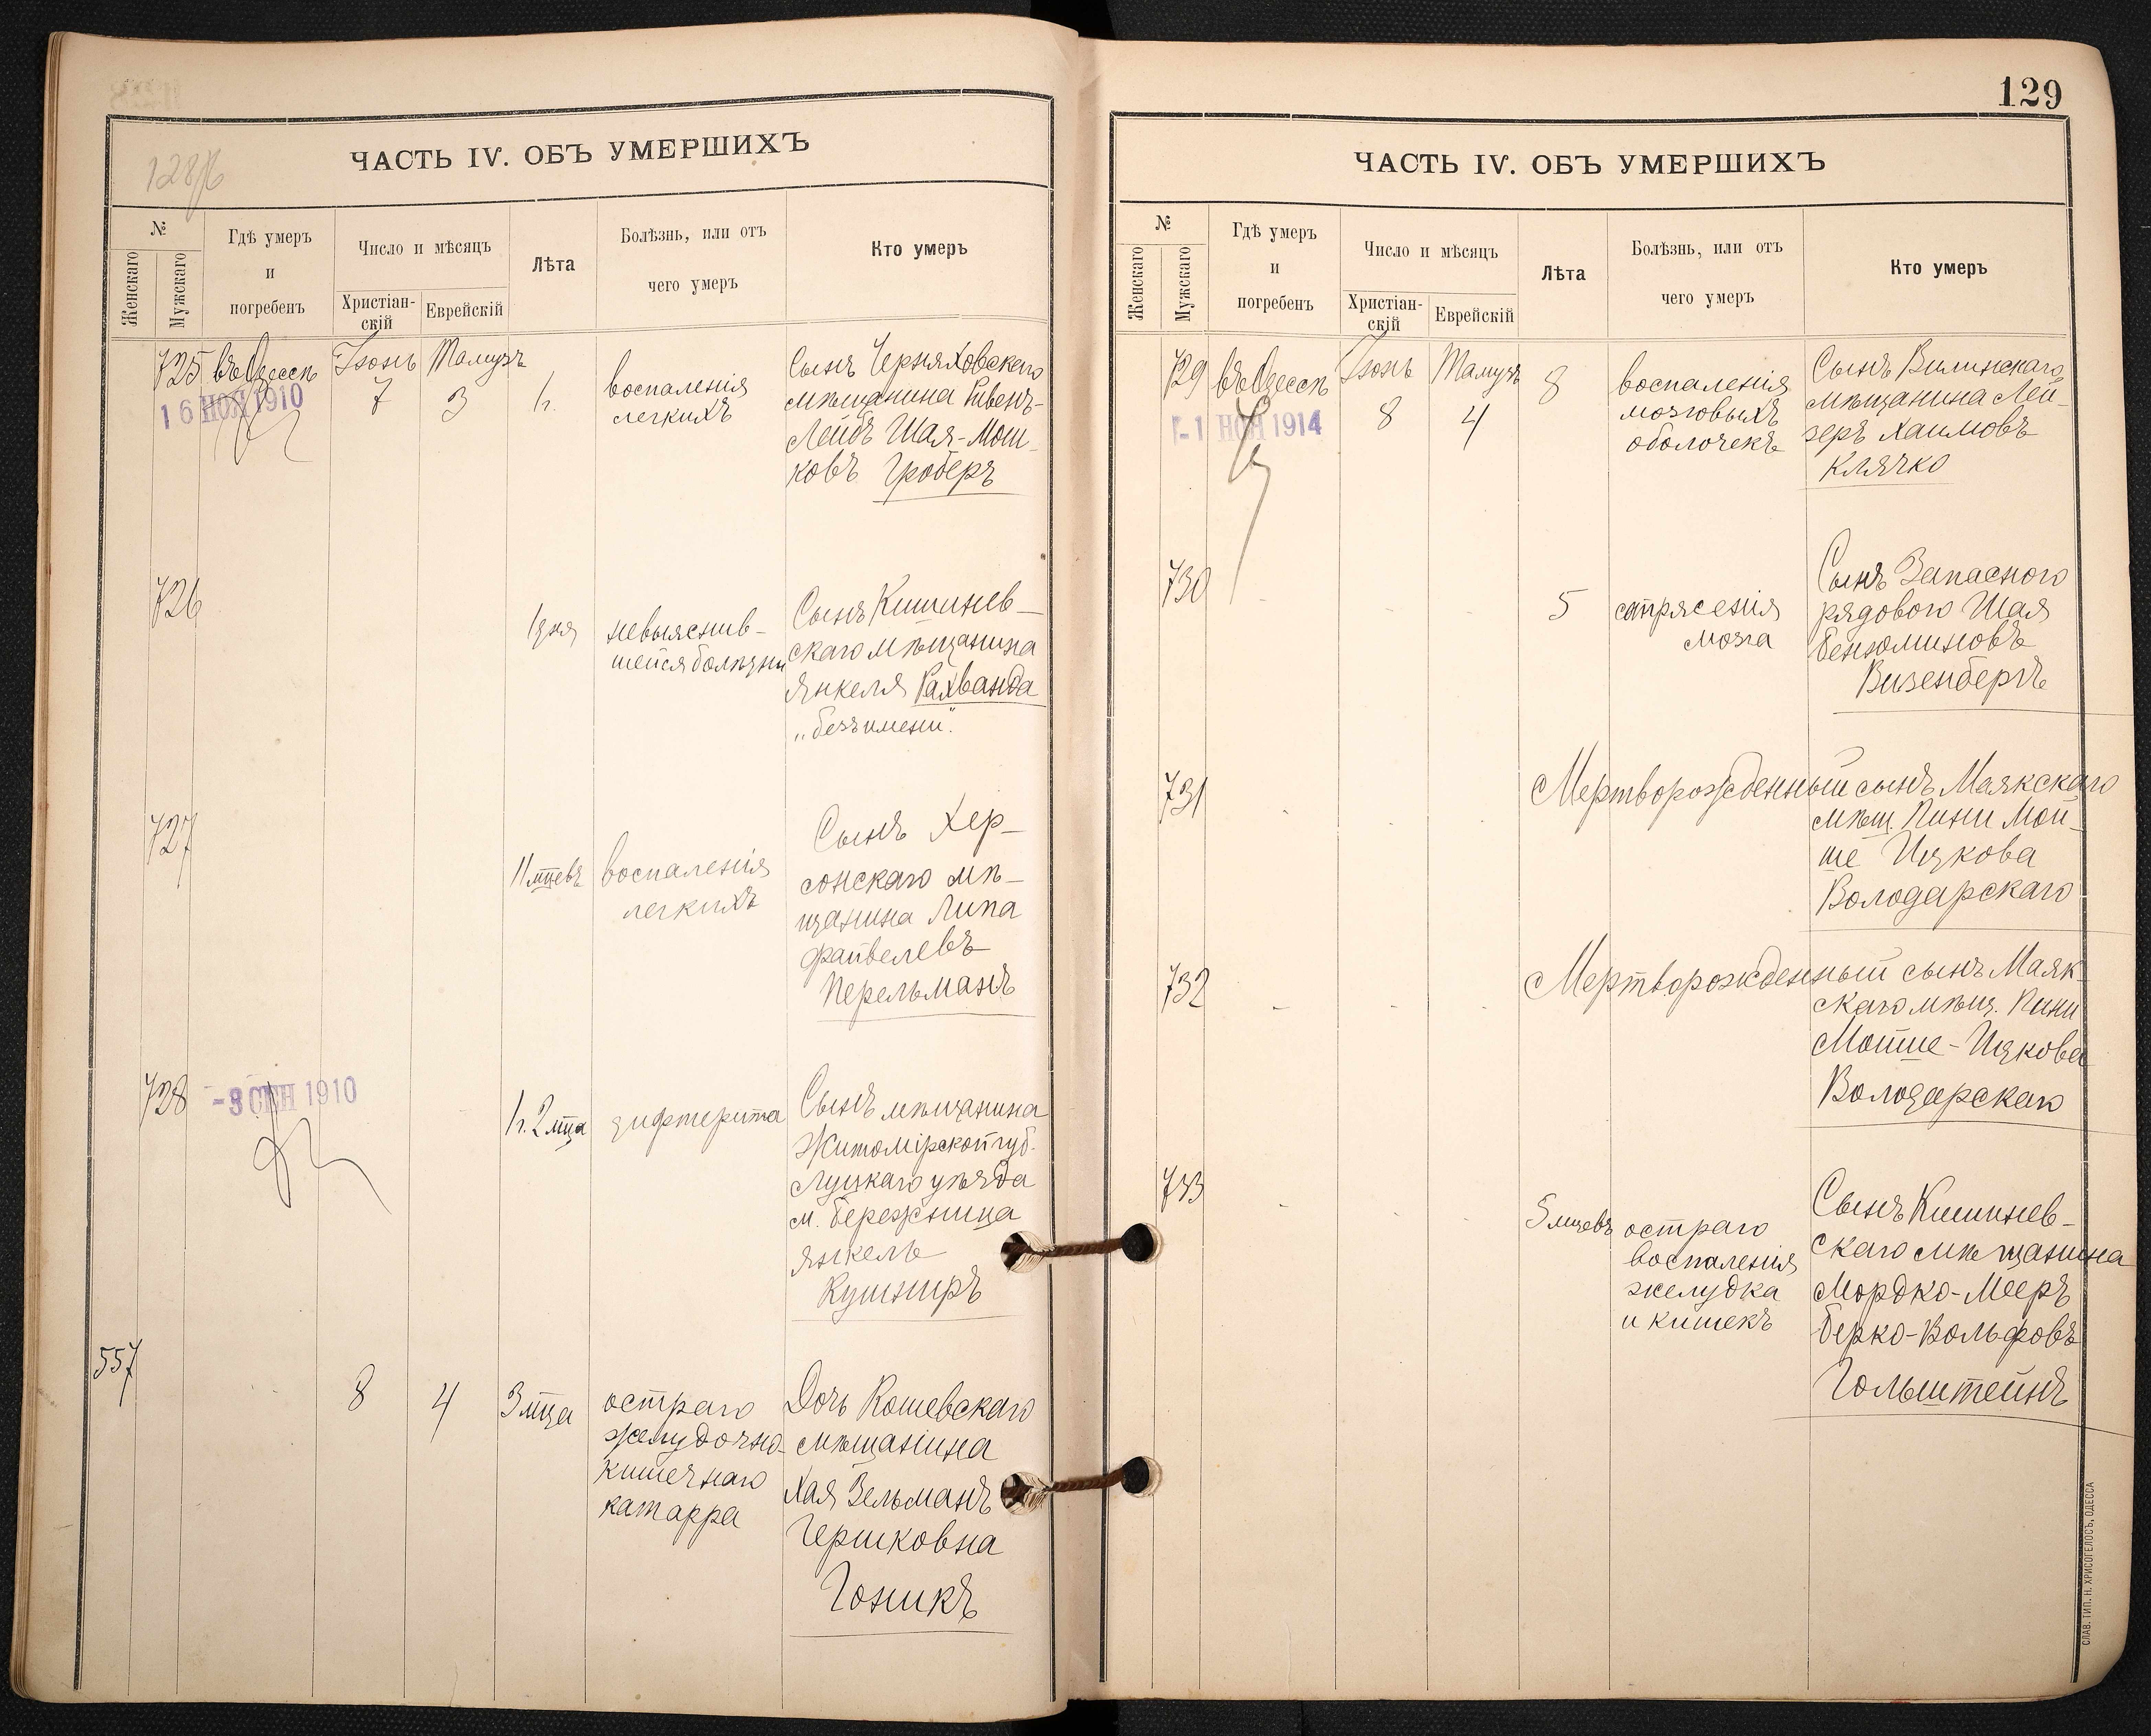 128/б
ЧАСТЬ IV. ОБЪ УМЕРШИХЪ
№
Женскаго
Мужскаго
Гдѣ умеръ
и
погребенъ
Число и мѣсяцъ
Христіан-
скій
Еврейскій
Лѣта
Болѣзнь, или отъ
чего умеръ
Кто умеръ
725 въ Одессѣ Іюнь Тамузъ
16 НОЯ 1910
7 3 1г.
воспаленія
легкихъ
Сынъ Черняховскаго
мѣщанина Ривенъ-
Лейбъ Шая-Мош-
ковъ Гроберъ
726
1 дня
невыяснив-
шейся болѣзни
Сынъ Кишинев-
скаго мѣщанина
Янкеля Рахванда
„безъ имени".
727
11 мцевъ
воспаленія
легкихъ
Сынъ Хер-
сонскаго мѣ-
щанина Липа
Файвелевъ
Перельманъ
728
-3 СЕН 1910
1г. 2 мца
дифтерита
Сынъ мѣщанина
Житомірской губ.
Луцкаго уѣзда
м. Бережница
Янкель
Кушниръ
557
8 4 3 мца
остраго
желудочно-
кишечнаго
катарра
Дочь Кошевскаго
мѣщанина
Хая Зельманъ
Гершковна
Гоникъ
129
ЧАСТЬ IV. ОБЪ УМЕРШИХЪ
№
Женскаго
Мужскаго
Гдѣ умеръ
и
погребенъ
Число и мѣсяцъ
Христіан-
скій
Еврейскій
Лѣта
Болѣзнь, или отъ
чего умеръ
Кто умеръ
729 въ Одессѣ Іюнь Тамузъ
-1 НОЯ 1914
8 4 8
воспаленія
мозговыхъ
оболочекъ
Сынъ Вилинскаго
мѣщанина Лей-
зеръ Хаимовъ
Клячко
730
5
сотрясенія
мозга
Сынъ Запасного
рядового Шая
Бенюминовъ
Визенбергъ
731
Мертворожденный сынъ Маякскаго
мѣщ. Пини Мой-
ше Ицкова
Володарскаго
732
Мертворожденный сынъ Маяк-
скаго мѣщ. Пини
Мойше-Ицкова
Володарскаго
733
5 мцевъ
остраго
воспаленія
желудка
и кишекъ
Сынъ Кишинев-
скаго мѣщанина
Мордко-Мееръ
Берко-Вольфовъ
Гольштейнъ
СЛАВ. ТИП. Н. ХРИСОГЕЛОСЪ, ОДЕССА